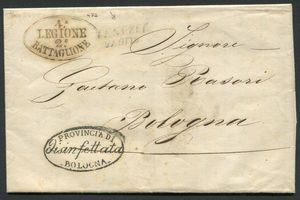 4.ª
LEGIONE
2.º
BATTAGLIONE
Signore
Gaetano Rasori
Bologna
PROVINCIA DI
Disinfettata
BOLOGNA.